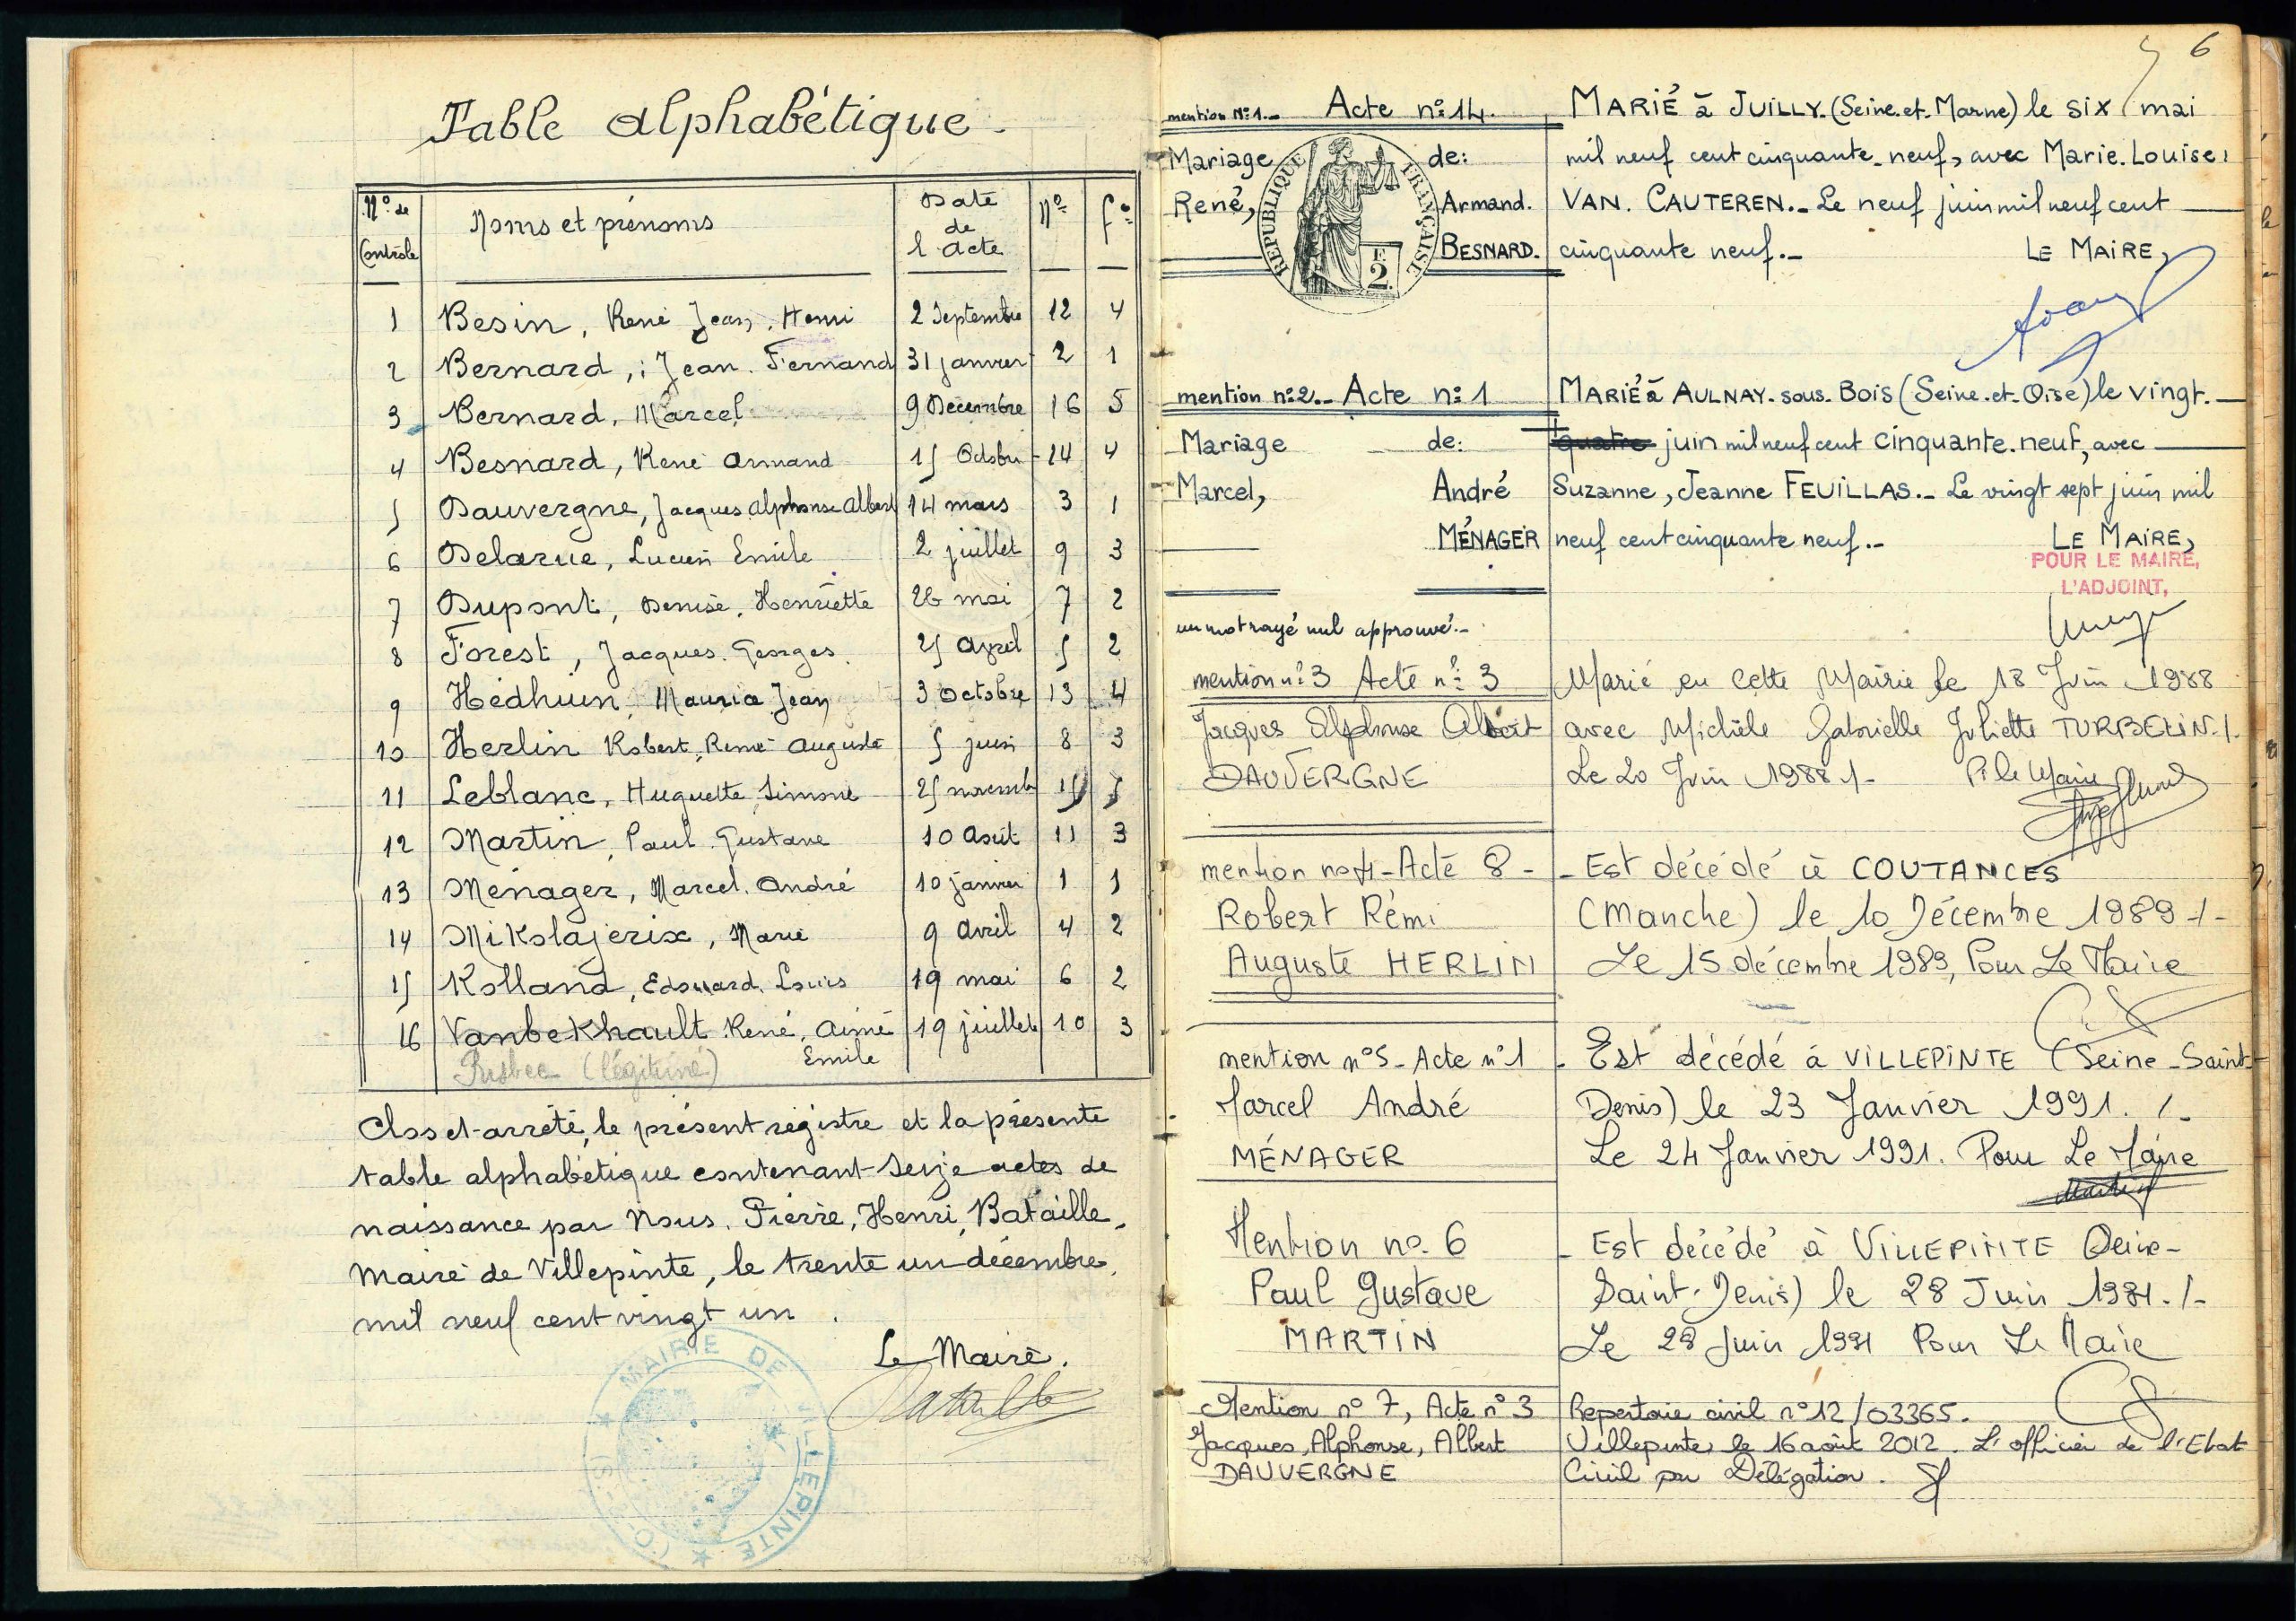 Table alphabétique.
N° de Contrôle | Noms et prénoms | Date de l'acte | N° | f°
1 Besin, René Jean, Henri 2 Septembre 12 4
2 Bernard, Jean. Fernand 31 janvier 2 1
3 Bernard, Marcel 9 Décembre 16 5
4 Besnard, René Armand 15 Octobre 14 4
5 Dauvergne, Jacques Alphonse Albert 14 mars 3 1
6 Delarue, Lucien Emile 2 juillet 9 3
7 Dupont, Denise, Henriette 26 mai 7 2
8 Forest, Jacques. Georges. 25 Avril 5 2
9 Hédhuin, Maurice Jean 3 Octobre 13 4
10 Herlin Robert, Rémi Auguste 5 juin 8 3
11 Leblanc, Huguette, Simone 25 novemb 15 5
12 Martin, Paul Gustave 10 Août 11 3
13 Ménager, Marcel. André 10 janvier 1 1
14 Mikolajerix, Marie 9 Avril 4 2
15 Rolland, Edouard, Louis 19 mai 6 2
16 Vanbekhault René, Aimé 19 juillet 10 3
(légitimé) Emile
Clos et arrêté, le présent registre et la présente
table alphabétique contenant seize actes de
naissance par Nous, Pierre, Henri, Bataille,
Maire de Villepinte, le trente un décembre
mil neuf cent vingt un.
Le Maire.
MAIRIE DE VILLEPINTE (S-&-O)
6
mention N°1.- Acte n°14. MARIÉ à JUILLY. (Seine.et.Marne) le six mai
Mariage de: mil neuf cent cinquante-neuf, avec Marie.Louise,
René, Armand. VAN. CAUTEREN.- Le neuf juin mil neuf cent
BESNARD. cinquante neuf.- LE MAIRE,
RÉPUBLIQUE FRANÇAISE
F. 2.
mention n°2.- Acte n°1 MARIÉ à AULNAY-sous-BOIS (Seine.et.Oise) le vingt.
Mariage de: quatre juin mil neuf cent cinquante.neuf, avec
Marcel, André Suzanne, Jeanne FEUILLAS.- Le vingt sept juin mil
MÉNAGER neuf cent cinquante neuf.- LE MAIRE,
POUR LE MAIRE,
L'ADJOINT,
un mot rayé nul approuvé.-
mention n°3 Acte n°3 Marié en cette Mairie le 18 Juin 1988
Jacques Alphonse Albert avec Michèle Gabrielle Juliette TURBELIN./.
DAUVERGNE Le 20 Juin 1988 /- P. le Maire
mention no 4 - Acte 8 - - Est décédé à COUTANCES
Robert Rémi (Manche) le 10 Décembre 1989 -/-
Auguste HERLIN Le 15 décembre 1989, Pour Le Maire
mention n°5 - Acte n°1 - Est décédé à VILLEPINTE (Seine-Saint-
Marcel André Denis) le 23 Janvier 1991. /-
MÉNAGER Le 24 Janvier 1991. Pour Le Maire
Mention no. 6 - Est décédé à VILLEPINTE (Seine-
Paul Gustave Saint-Denis) le 28 Juin 1991. /-
MARTIN Le 29 Juin 1991 Pour Le Maire
Mention n° 7, Acte n° 3 Repertoire civil n° 12/03365.
Jacques, Alphonse, Albert Villepinte, le 16 août 2012. L'officier de l'Etat
DAUVERGNE Civil par Délégation.